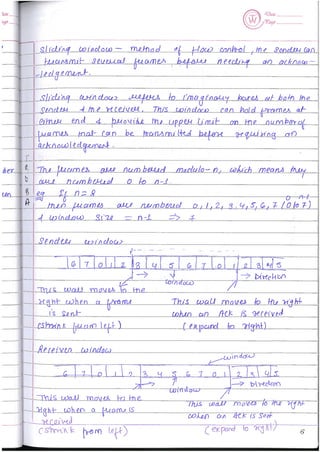 Sliding window - method of flow control, the sender can
transmit several frames before needing an acknow-
-ledgement.
Sliding window refers to imaginary boxes at both the
sender & the receiver. This window can hold frames at
either end & provide the upper limit on the number of
frames that can be transmitted before requiring an
acknowledgement.
The frames are numbered modulo-n, which means they
are numbered 0 to n-1.
eg If n=8
0 n-1
then frames are numbered 0,1,2,3,4,5,6,7 (0 to 7)
& window size = n-1 → 7
Sender window
6 7 0 1 2 3 4 5 6 7 0 1 2 3 4 5
→ Direction
window
This wall moves to the
right when a frame
is sent
(shrink from left)
This wall moves to the right
when an ACK is received
(expand to right)
Receiver window
window
6 7 0 1 2 3 4 5 6 7 0 1 2 3 4 5
→ Direction
window
This wall moves to the
right when a frame is
received
(shrink from left)
This wall moves to the right
when an ACK is sent
(expand to right)
6